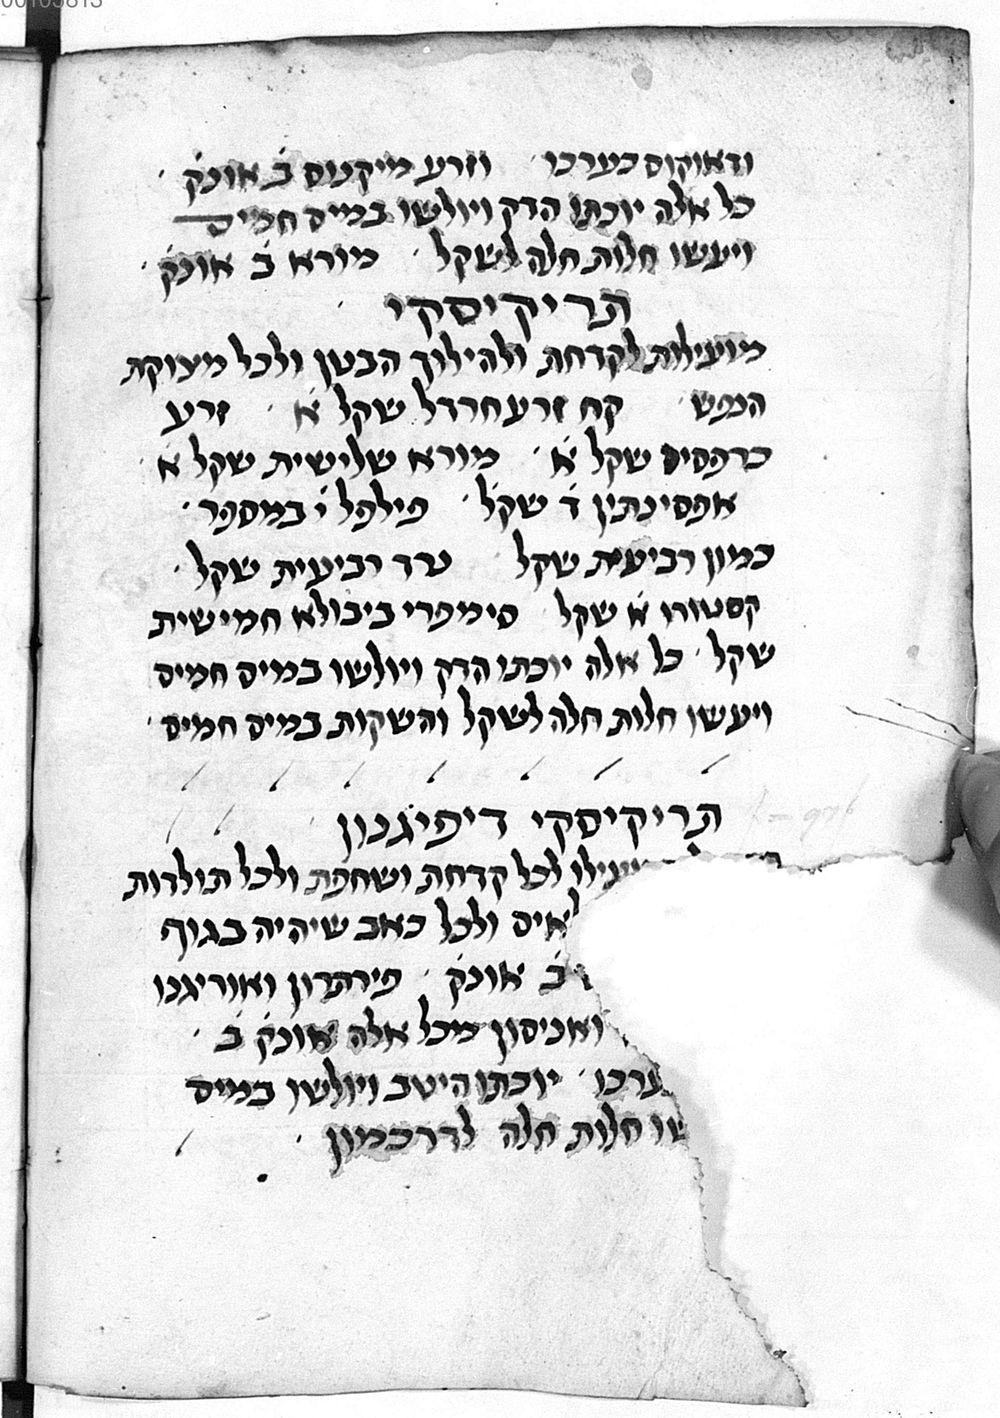 ודאוקוס כערכו וזרע מיקנוס ב̇ אונק̇
כל אלה יוכתו הדק ויולשו במים חמים
ויעשו חלות חלה לשקל מורא ב̇ אונק̇
תריקיסקי
מועילות לקדחת ולהילוך הבטן ולכל מצוקת
הנפש קח זרע חרדל שקל א̇ זרע
כרפסים שקל א̇ מורא שלישית שקל א̇
אפסינתין ד̇ שקל פילפל י̇ במספר
כמון רביעית שקל נרד רביעית שקל
קסטורו א̇ שקל סימפרי ביבולא חמישית
שקל כל אלה יוכתו הדק ויולשו במים חמים
ויעשו חלות חלה לשקל והשקות במים חמים
תריקיסקי דיפיגנון
לכל קדחת ושחפת ולכל תולדות
ולכל כאב שיהיה בגוף
ב̇ אונק̇ פירתרון ואוריגנו
ואניסון מכל אלה אונק̇ ב̇
ערכו יוכתו היטב ויולשו במים
שו חלות חלה לדרכמון